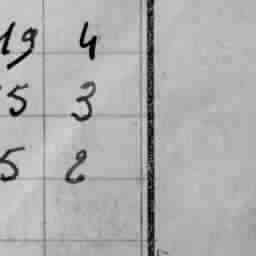 19 4
5 3
5 2